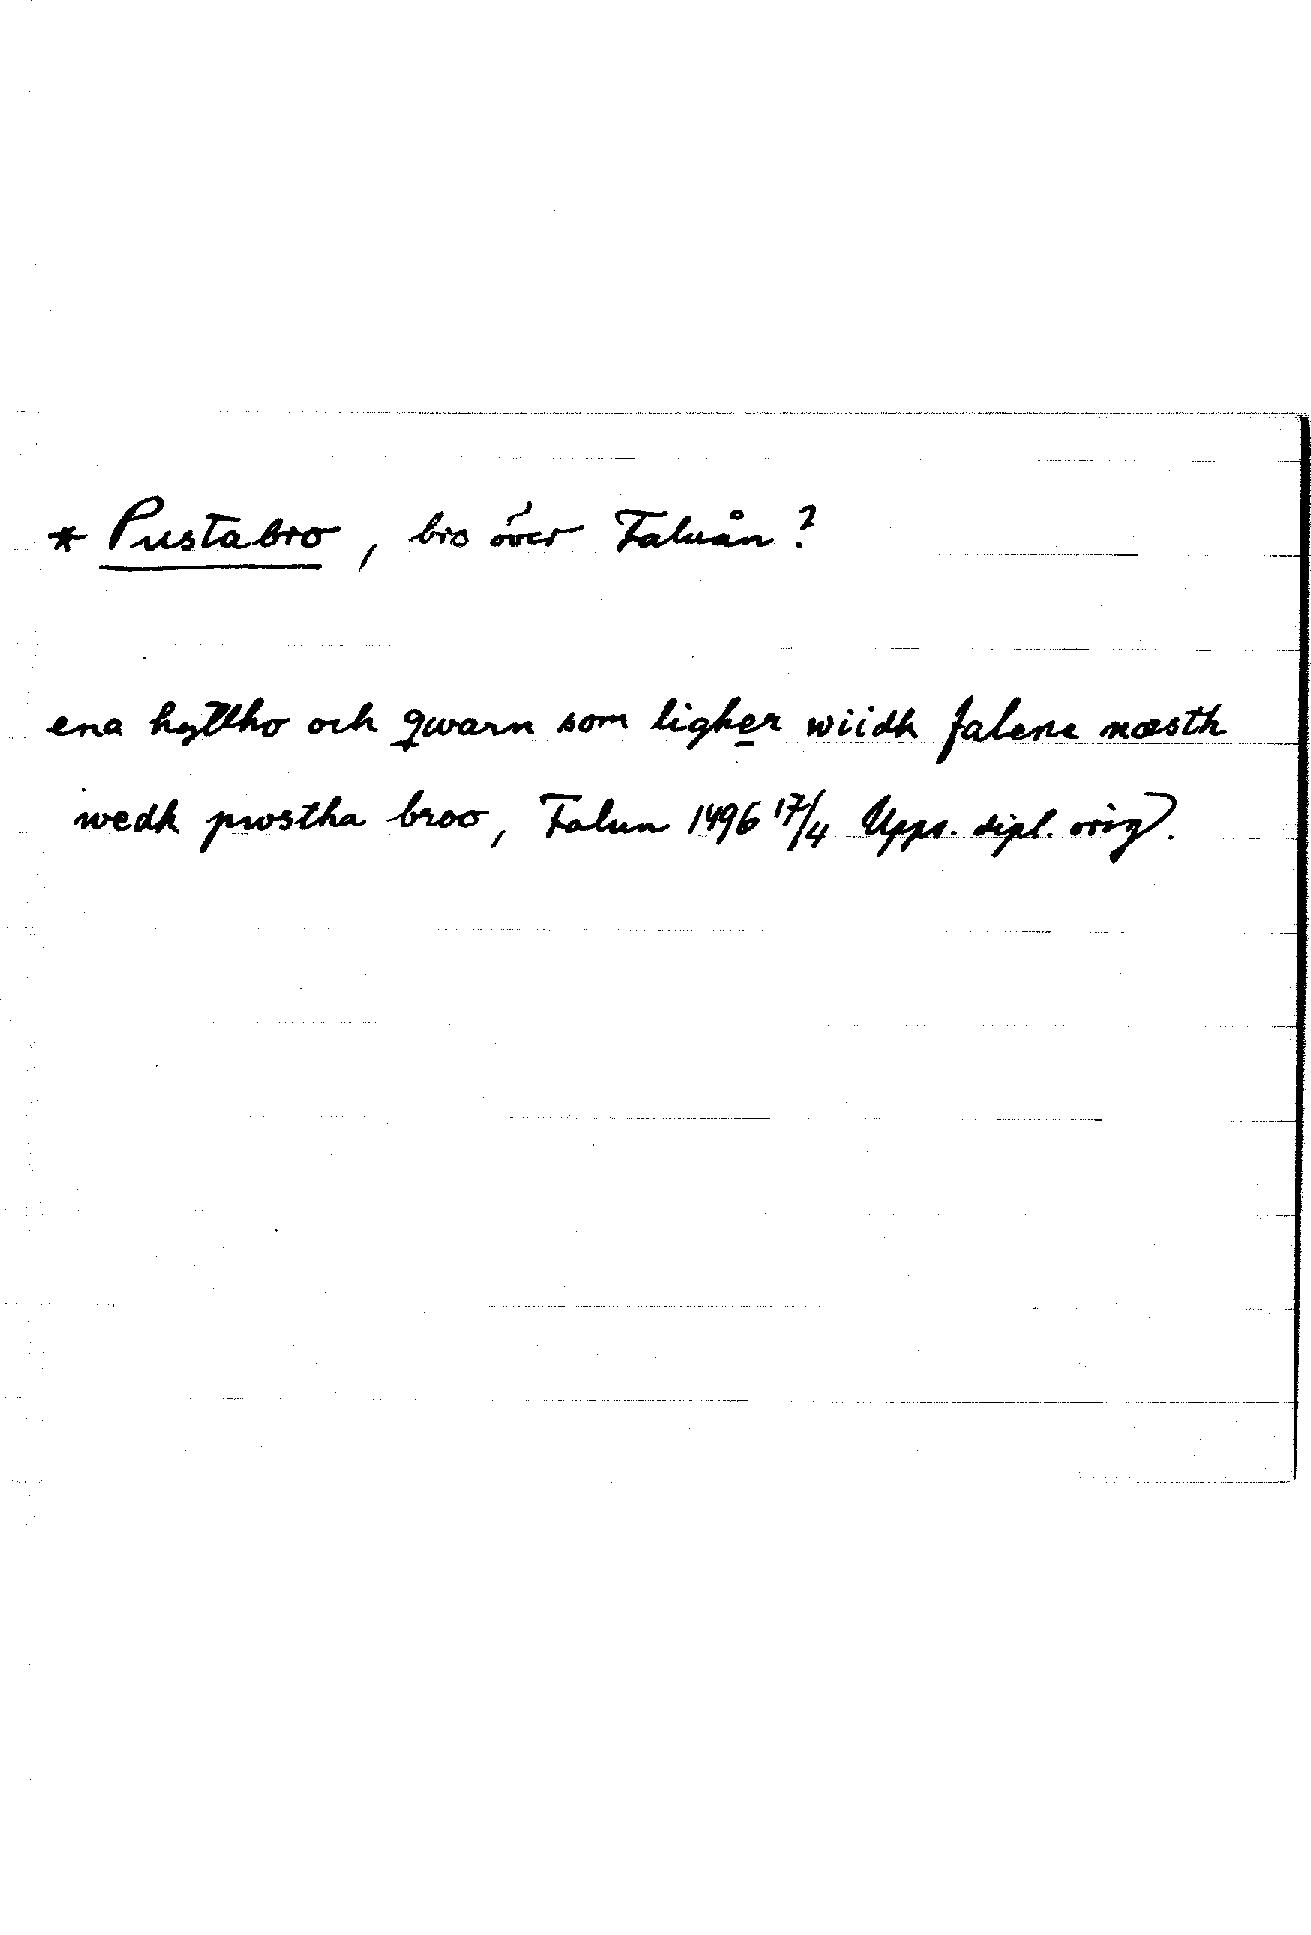 * Pustabro, bro över Faluån?
ena hyttho och qwarn som ligher wiidh falene næsth
wedh pwstha broo, Falun 1496 17/4 Upps. dipl. orig.